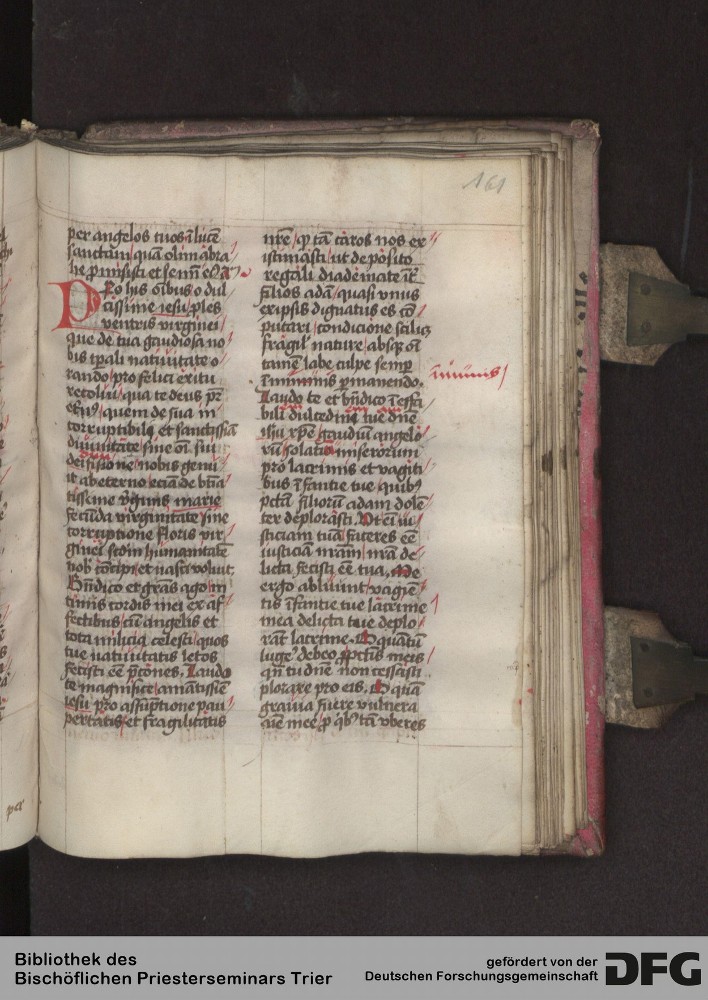 161
per angelos tuos ī lucē
sanctam quā olim abra
he ꝓmisisti et semīī eius
Pro hijs oībus o dul
cissime iesu ples
ventris virginei
que de tua gaudiosa no
bis tꝑali natiuitate o
rando pro felici exitu
recoluī qua te deus pr̄
quem de sua in
corruptibili et sanctissīa
diuinitate sine oī sui
deisione nobis genu
it ab eterno eciā de btīa
tissime v̄ginis marie
fecūda virginitate sine
corruptione floris vir
ginei scdm humanitatē
nob concipi et nasci voluit
Bn̄dico et grās ago in
timis cordis mei ex af
fectibus cū angelis et
tota milicia celesti quos
tue natiuitatis letos
fecisti eē p̄cones. Laudo
te magnifice amātissīe
iesu pro assūptione pau
pertatis et fragilitatis
nr̄e qꝫ tā caros nos ex
istimasti ut deposito
regali diademate īt̄
filios adā quasi vnus
ex ipsis dignatus es cō
putari condicione scilicꝫ
fragil nature absqꝫ oī
tamē labe culpe semꝑ
ꝑmanendo.
īmunis
Laudo te et bn̄dico ī effa
bilī dulcedinē tue dn̄e
ihū xp̄e gaudiū angelo
rū solatiū miserorum
pro lacrimis et vagiti
bus īfantie tue quibꝫ
pctā filiorū adam dolē
ter deplorasti. Ut eī iu
sticiam tuā faceres eē
iusticiā nrām nrā de
licta fecisti eē tua.
ergo abluunt vagiē
tis īfantie tue lacrime
mea delicta tue deplo
rāt lacrime. O quātū
lugē debeo ꝓ pctis meis
qn̄ tu dn̄e non cessasti
plorare pro eis. O quā
grauia fuere vulnera
aīe mee ꝓ qibꝫ tā vberes
per
Bibliothek des
Bischöflichen Priesterseminars Trier
gefördert von der
Deutschen Forschungsgemeinschaft
DFG